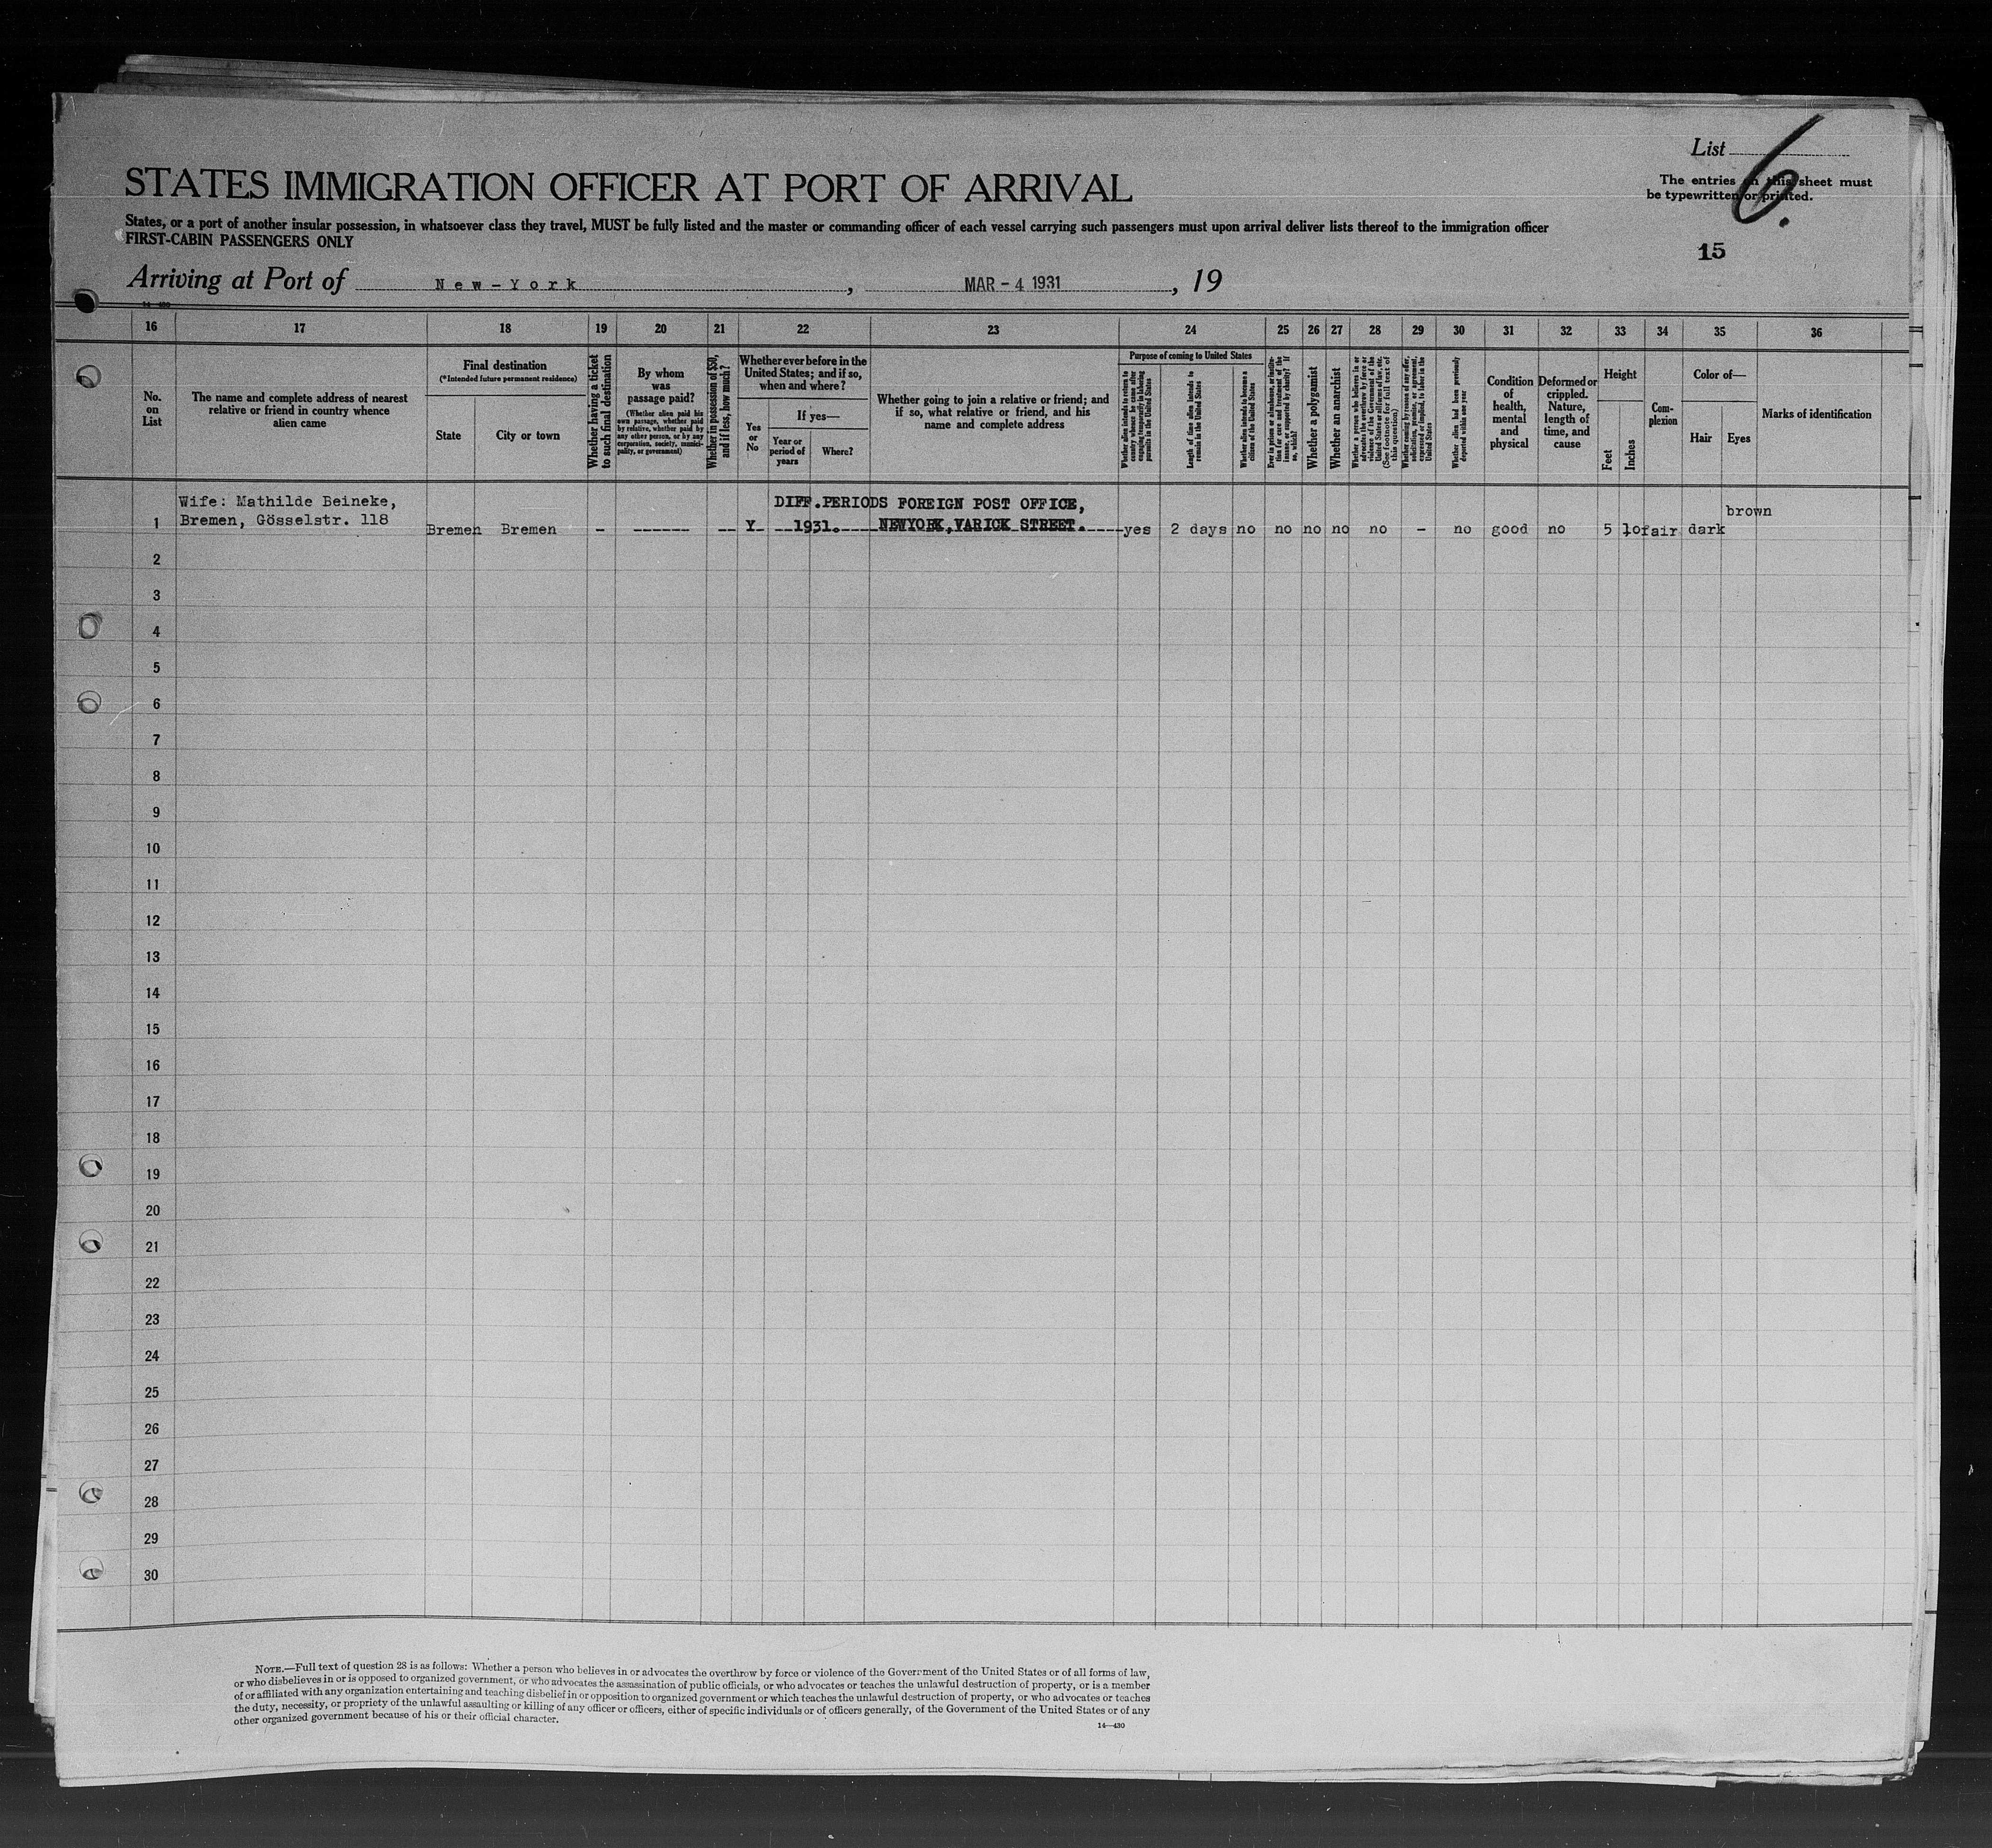 List 6.
The entries on this sheet must
be typewritten or printed.
STATES IMMIGRATION OFFICER AT PORT OF ARRIVAL
States, or a port of another insular possession, in whatsoever class they travel, MUST be fully listed and the master or commanding officer of each vessel carrying such passengers must upon arrival deliver lists thereof to the immigration officer
FIRST-CABIN PASSENGERS ONLY
15
Arriving at Port of New-York, MAR - 4 1931, 19
14-430
16 17 18 19 20 21 22 23 24 25 26 27 28 29 30 31 32 33 34 35 36
No.
on
List
The name and complete address of nearest
relative or friend in country whence
alien came
Final destination
(*Intended future permanent residence)
State
City or town
Whether having a ticket
to such final destination
By whom
was
passage paid?
(Whether alien paid his
own passage, whether paid
by relative, whether paid by
any other person, or by any
corporation, society, munici-
pality, or government)
Whether in possession of $50,
and if less, how much?
Whether ever before in the
United States; and if so,
when and where?
Yes
or
No
If yes—
Year or
period of
years
Where?
Whether going to join a relative or friend; and
if so, what relative or friend, and his
name and complete address
Purpose of coming to United States
Whether alien intends to return to
country whence he came after
engaging temporarily in laboring
pursuits in the United States
Length of time alien intends to
remain in the United States
Whether alien intends to become a
citizen of the United States
Ever in prison or almshouse, or institu-
tion for care and treatment of the
insane, or supported by charity? If
so, which?
Whether a polygamist
Whether an anarchist
Whether a person who believes in or
advocates the overthrow by force or
violence of the Government of the
United States or all forms of law, etc.
(See footnote for full text of
this question)
Whether coming by reason of any offer,
solicitation, promise, or agreement,
expressed or implied, to labor in the
United States
Whether alien had been previously
deported within one year
Condition
of
health,
mental
and
physical
Deformed or
crippled.
Nature,
length of
time, and
cause
Height
Feet
Inches
Com-
plexion
Color of—
Hair
Eyes
Marks of identification
Wife: Mathilde Beineke, DIFF.PERIODS FOREIGN POST OFFICE, brown
1 Bremen, Gösselstr. 118 Bremen Bremen - ------ -- Y 1931. NEWYORK,VARICK STREET. yes 2 days no no no no no - no good no 5 1o fair dark
2
3
4
5
6
7
8
9
10
11
12
13
14
15
16
17
18
19
20
21
22
23
24
25
26
27
28
29
30
NOTE.—Full text of question 28 is as follows: Whether a person who believes in or advocates the overthrow by force or violence of the Government of the United States or of all forms of law,
or who disbelieves in or is opposed to organized government, or who advocates the assassination of public officials, or who advocates or teaches the unlawful destruction of property, or is a member
of or affiliated with any organization entertaining and teaching disbelief in or opposition to organized government or which teaches the unlawful destruction of property, or who advocates or teaches
the duty, necessity, or propriety of the unlawful assaulting or killing of any officer or officers, either of specific individuals or of officers generally, of the Government of the United States or of any
other organized government because of his or their official character.
14—430